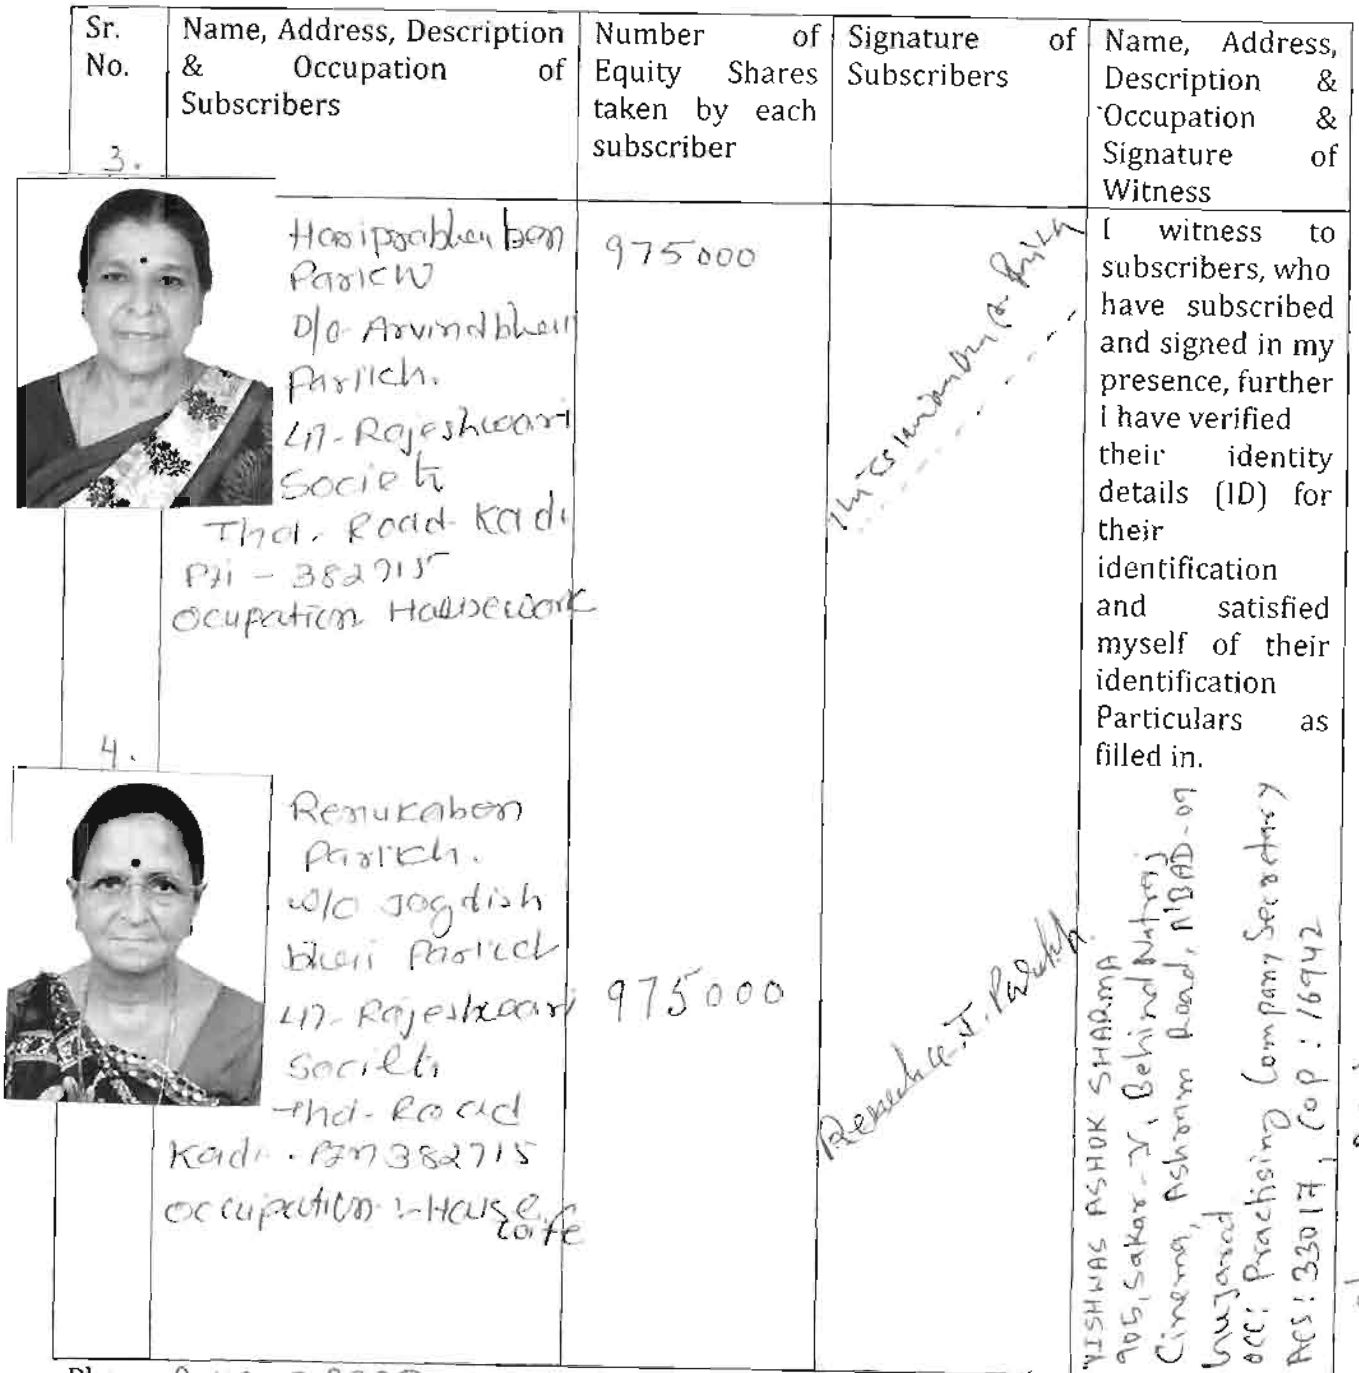 Sr.
No.
Name, Address, Description
& Occupation of
Subscribers
Number of
Equity Shares
taken by each
subscriber
Signature of
Subscribers
Name, Address,
Description &
Occupation &
Signature of
Witness
3.
Parikh
D/o Arvindbhai
Parikh.
47-Rajeshwari
Societi
Thol. Road Kadi
Pin - 382715
Ocupation Housework
975000
I witness to
subscribers, who
have subscribed
and signed in my
presence, further
I have verified
their identity
details (ID) for
their
identification
and satisfied
myself of their
identification
Particulars as
filled in.
4.
Renukaben
Parikh.
w/o Jagdish
bhai Parikh
47-Rajeshwari
Societi
Thol-Road
Kadi. Pin 382715
Occupation :- House
wife
975000
Renuka.J.Parikh.
VISHWAS ASHOK SHARMA
905, Sakar-V, Behind Natraj
Cinema, Ashram Road, A'BAD-09
Gujarat
OCC: Practising Company Secretary
ACS: 33017, COP: 16942